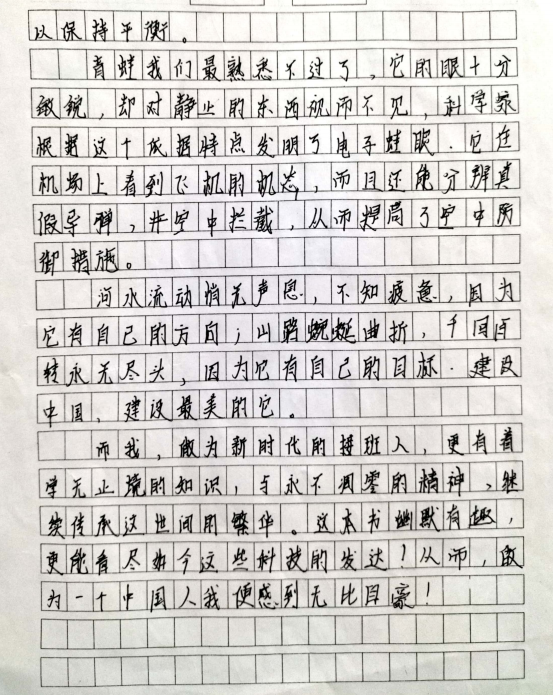 以保持平衡。
青蛙我们最熟悉不过了,它的眼十分
敏锐,却对静止的东西视而不见,科学家
根据这个依据特点发明了电子蛙眼.它在
机场上看到飞机的机态,而且还能分辨真
假导弹,并空中拦截,从而提高了空中防
御措施。
河水流动悄无声息,不知疲惫,因为
它有自己的方向;山路蜿蜒曲折,千回百
转永无尽头,因为它有自己的目标.建设
中国、建设最美的它。
而我,做为新时代的接班人,更有着
学无止境的知识,与永不凋零的精神、继
续传承这世间的繁华。这本书幽默有趣,
更能看尽如今这些科技的发达!从而,做
为一个中国人我便感到无比自豪!